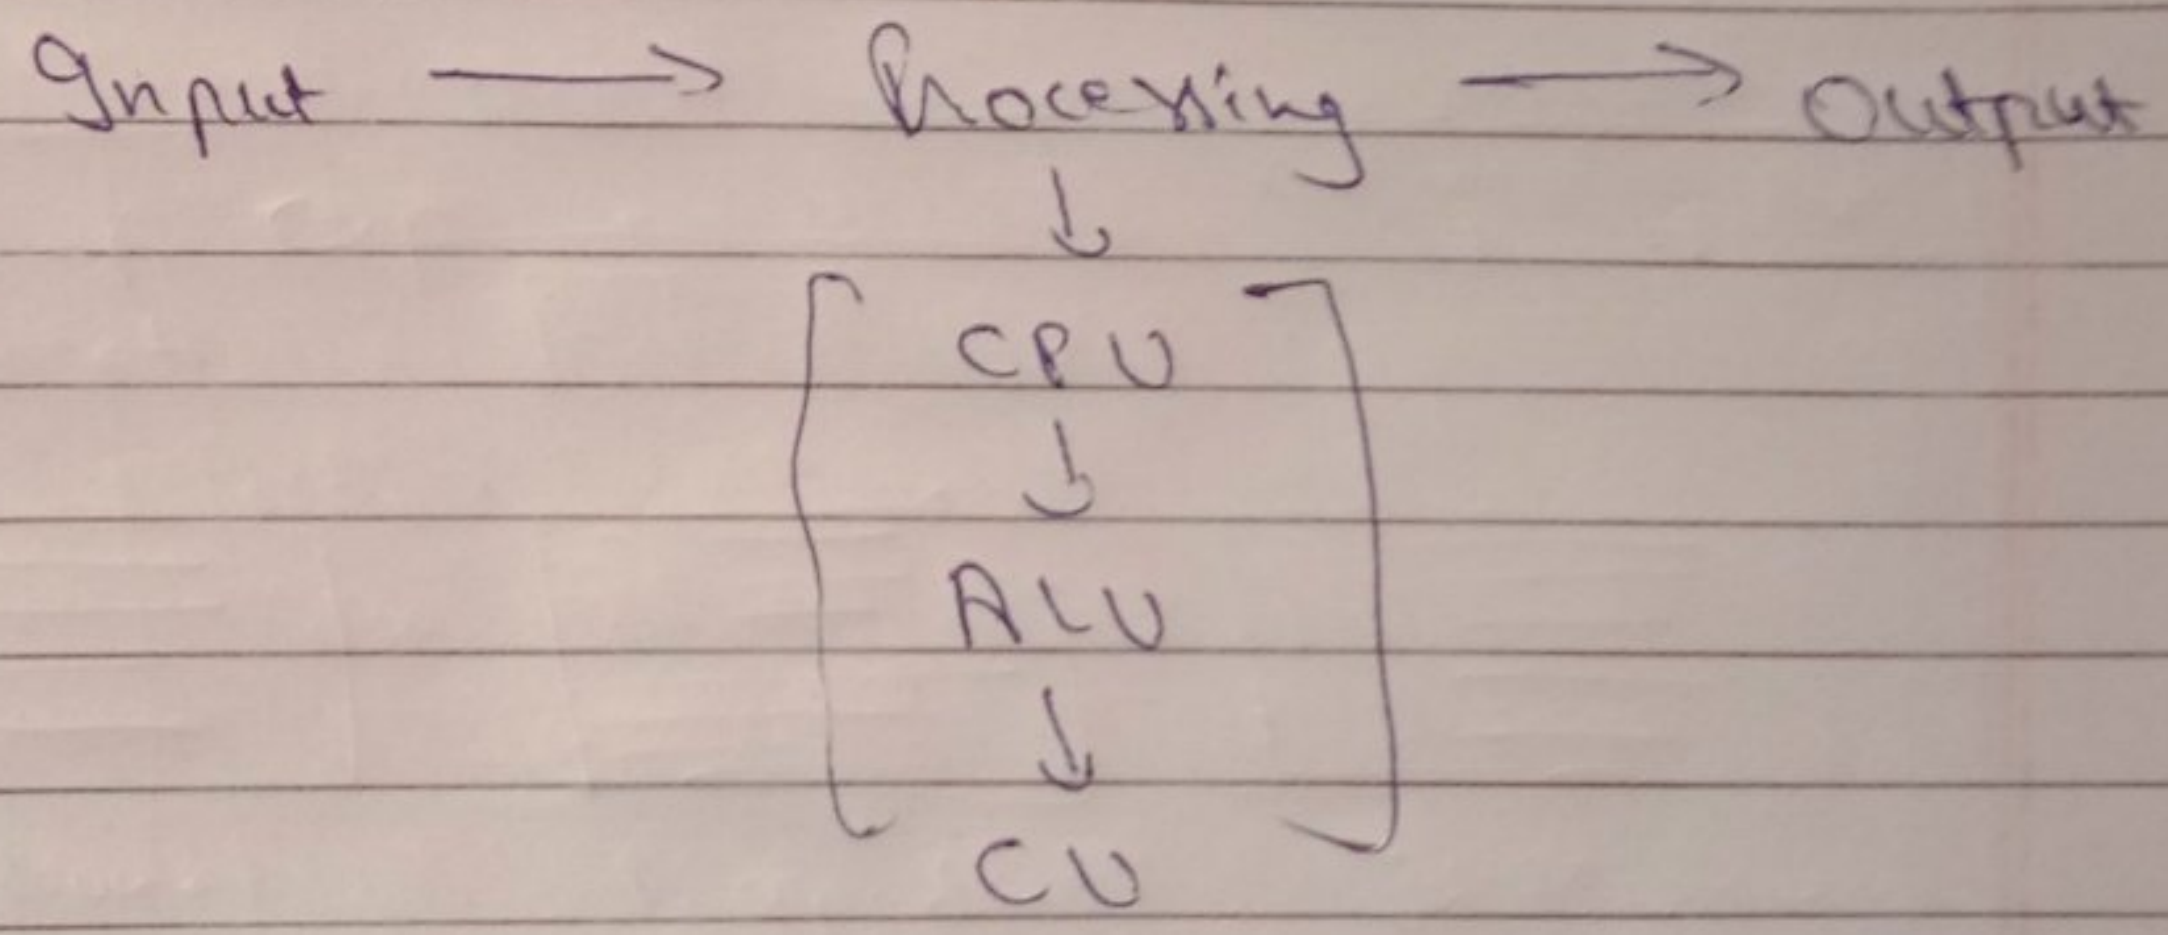 Input → Processing → Output
↓
CPU
↓
ALU
↓
CU